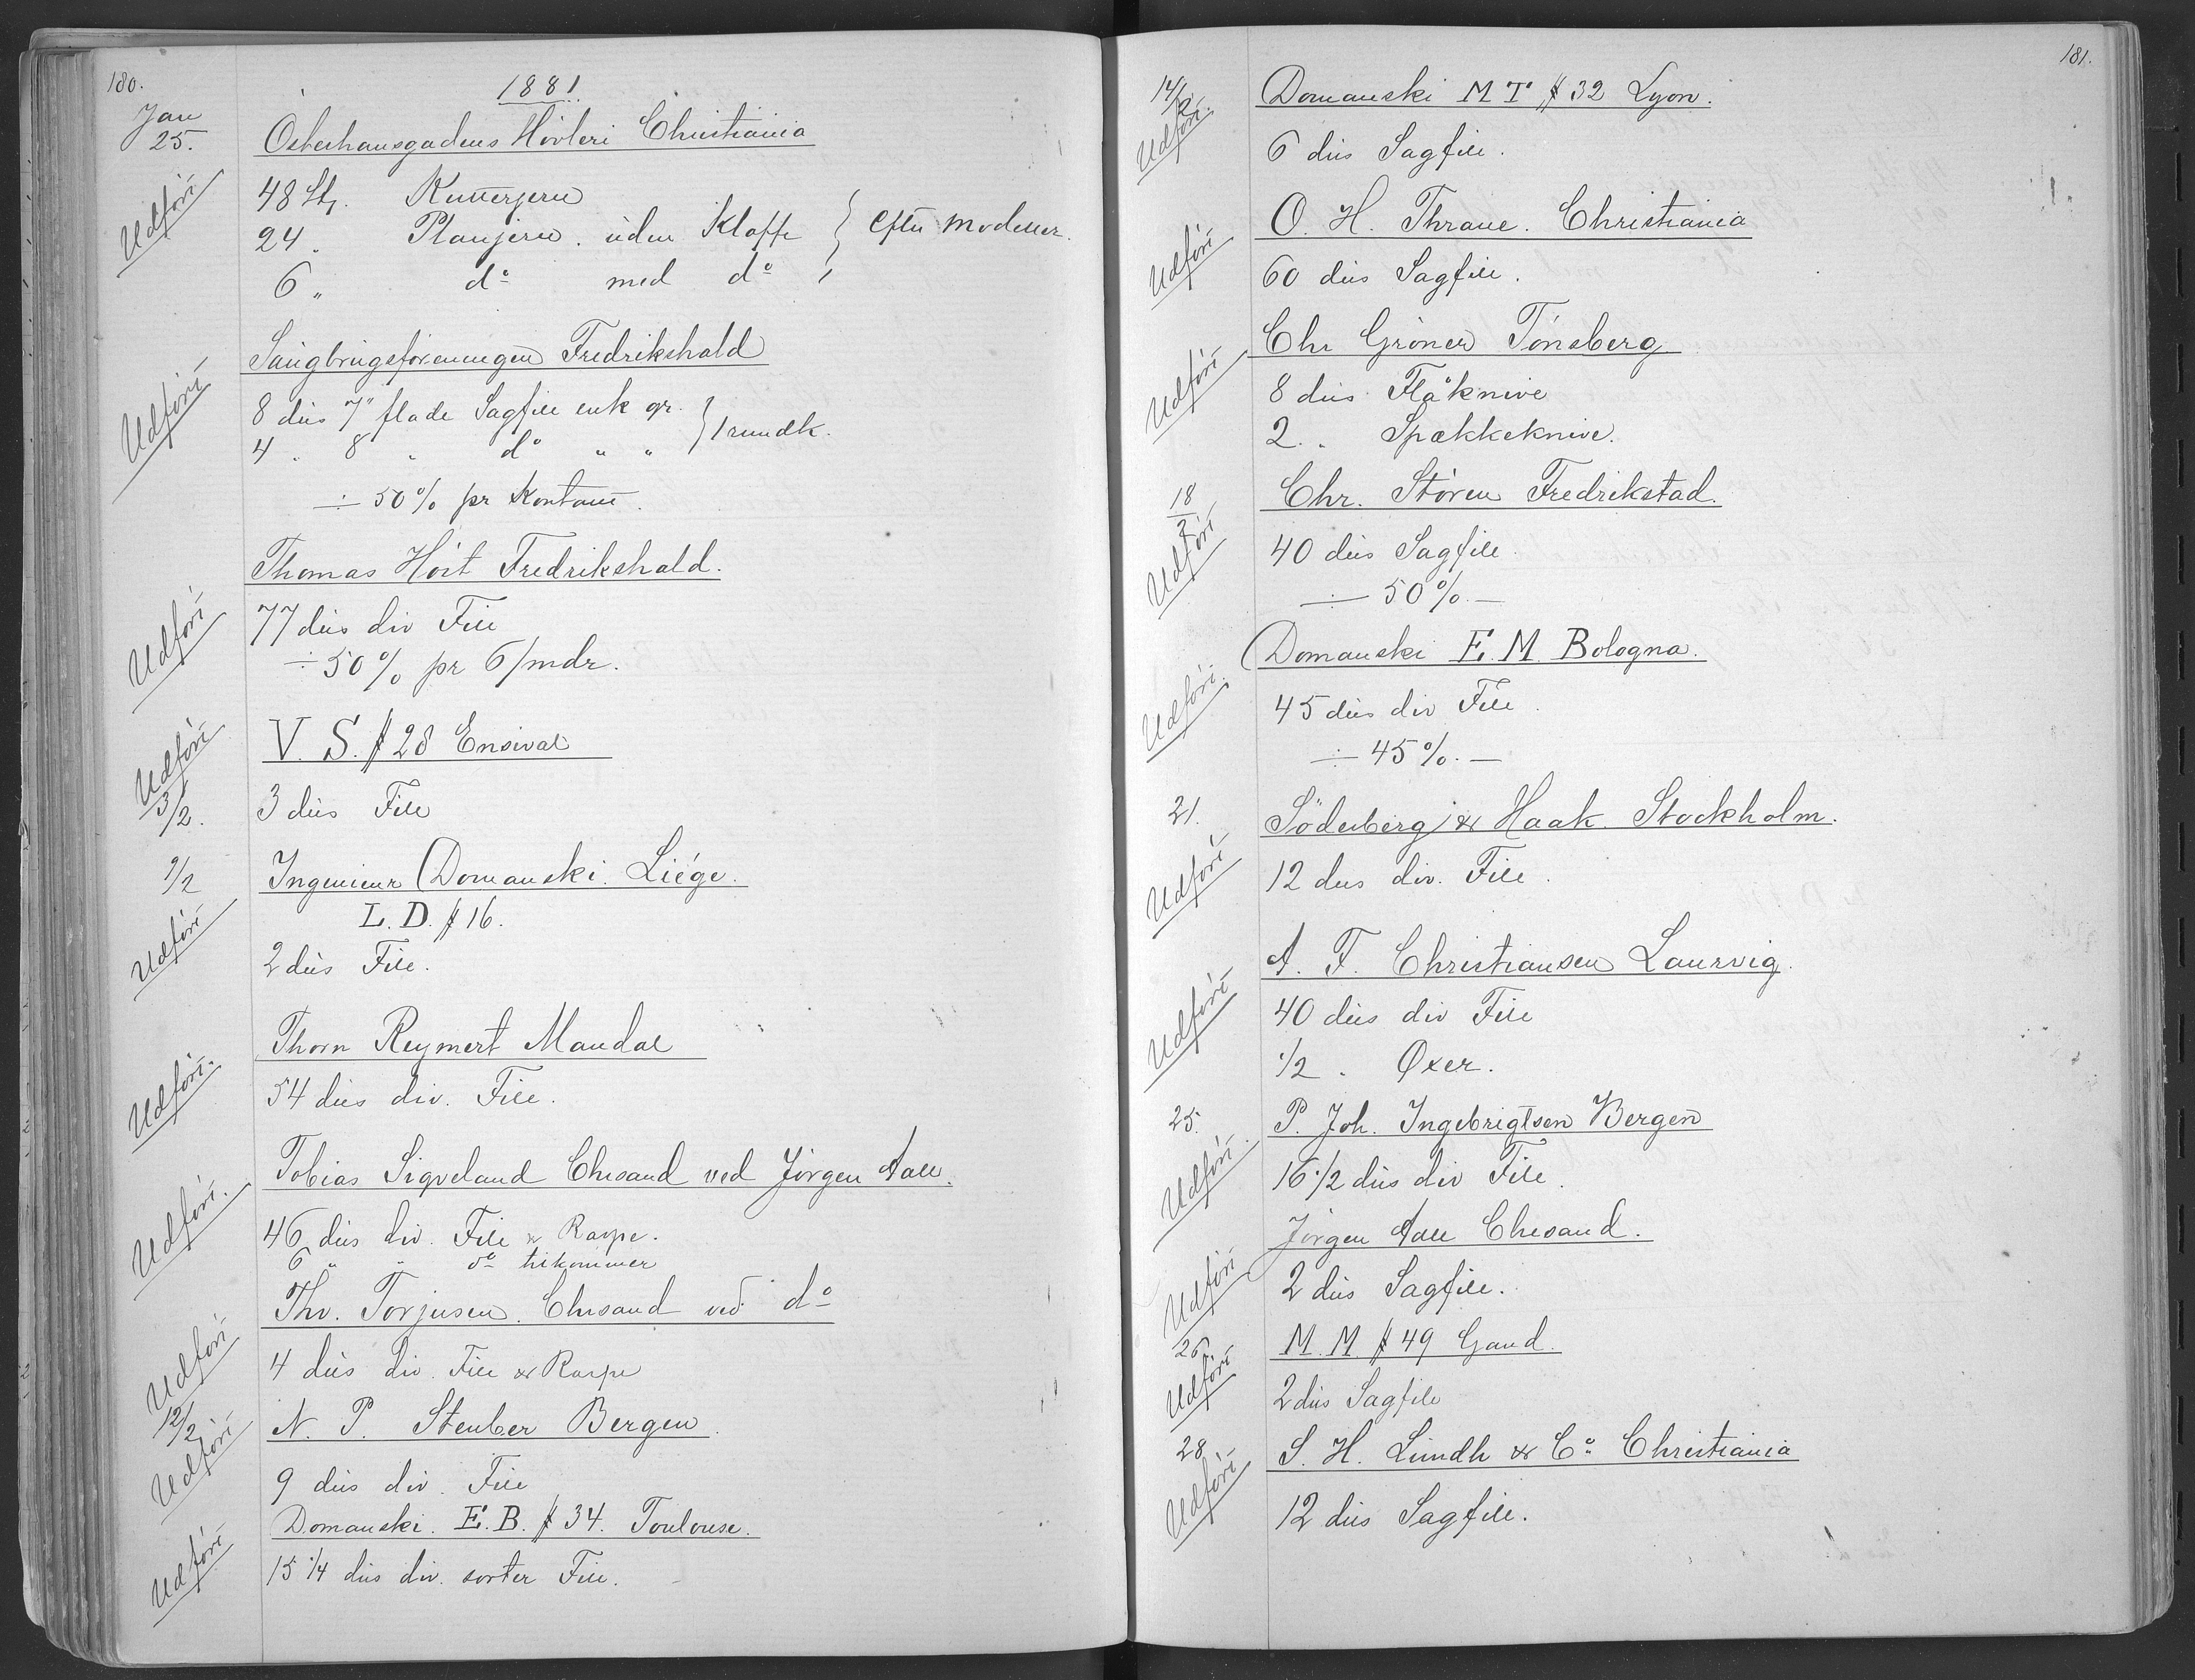 180.
1881
Jan
25. Osterhausgadens Hövleri Christiania
Udført 48 Stk. Kutterjern
24 " Planjern uden Klaffe } efter Modeller.
6 " do med do
Saugbrugsforeningen Fredrikshald
Udført 8 dus 7" flade Sagfile enk gr. } 1 rundk.
4 " 8 " do " "
÷ 50% pr Kontant.
Thomas Höit Fredrikshald.
Udført 77 dus div File
÷ 50% pr 6/mdr.
Udført V. S. # 28 Ensival
3/2. 3 dus File
9/2 Ingenieur Domanski. Liége.
Udført L. D. # 16.
2 dus File.
Thorn Reymert Mandal
Udført. 54 dus div. File.
Tobias Sigveland Chrsand ved Jörgen Aall.
Udført. 46 dus div. File & Raspe.
6 " " do tilkommer
Thv. Torjusen. Chrsand ved do
Udført 4 dus div. File & Raspe
12/2 N. P. Steuber Bergen
Udført 9 dus div. File
Domanski. E. B. # 34. Toulouse.
Udført 15 1/4 dus div. sorter File.
181.
14/2 Domanski M T # 32 Lyon.
Udført. 6 dus Sagfile.
O. H. Thrane. Christiania
Udført 60 dus Sagfile.
Chr Gröner Tönsberg
Udført 8 dus Flåknive
2 " Spækkeknive.
18/2 Chr. Stören Fredrikstad.
Udført 40 dus Sagfile
÷ 50%.—
Domanski E. M. Bologna.
Udført. 45 dus div File.
÷ 45%.—
21. Söderberg & Haak. Stockholm.
Udført 12 dus div. File.
A. F. Christiansen Laurvig.
Udført 40 dus div File
1/2 " Øxer.
25. P. Joh. Ingebrigtsen Bergen
Udført. 16 1/2 dus div File.
Jörgen Aall Chrsand.
Udført 2 dus Sagfile.
26 M. M. # 49 Gand.
Udført 2 dus Sagfile
28 S. H. Lundh & Co Christiania
Udført 12 dus Sagfile.